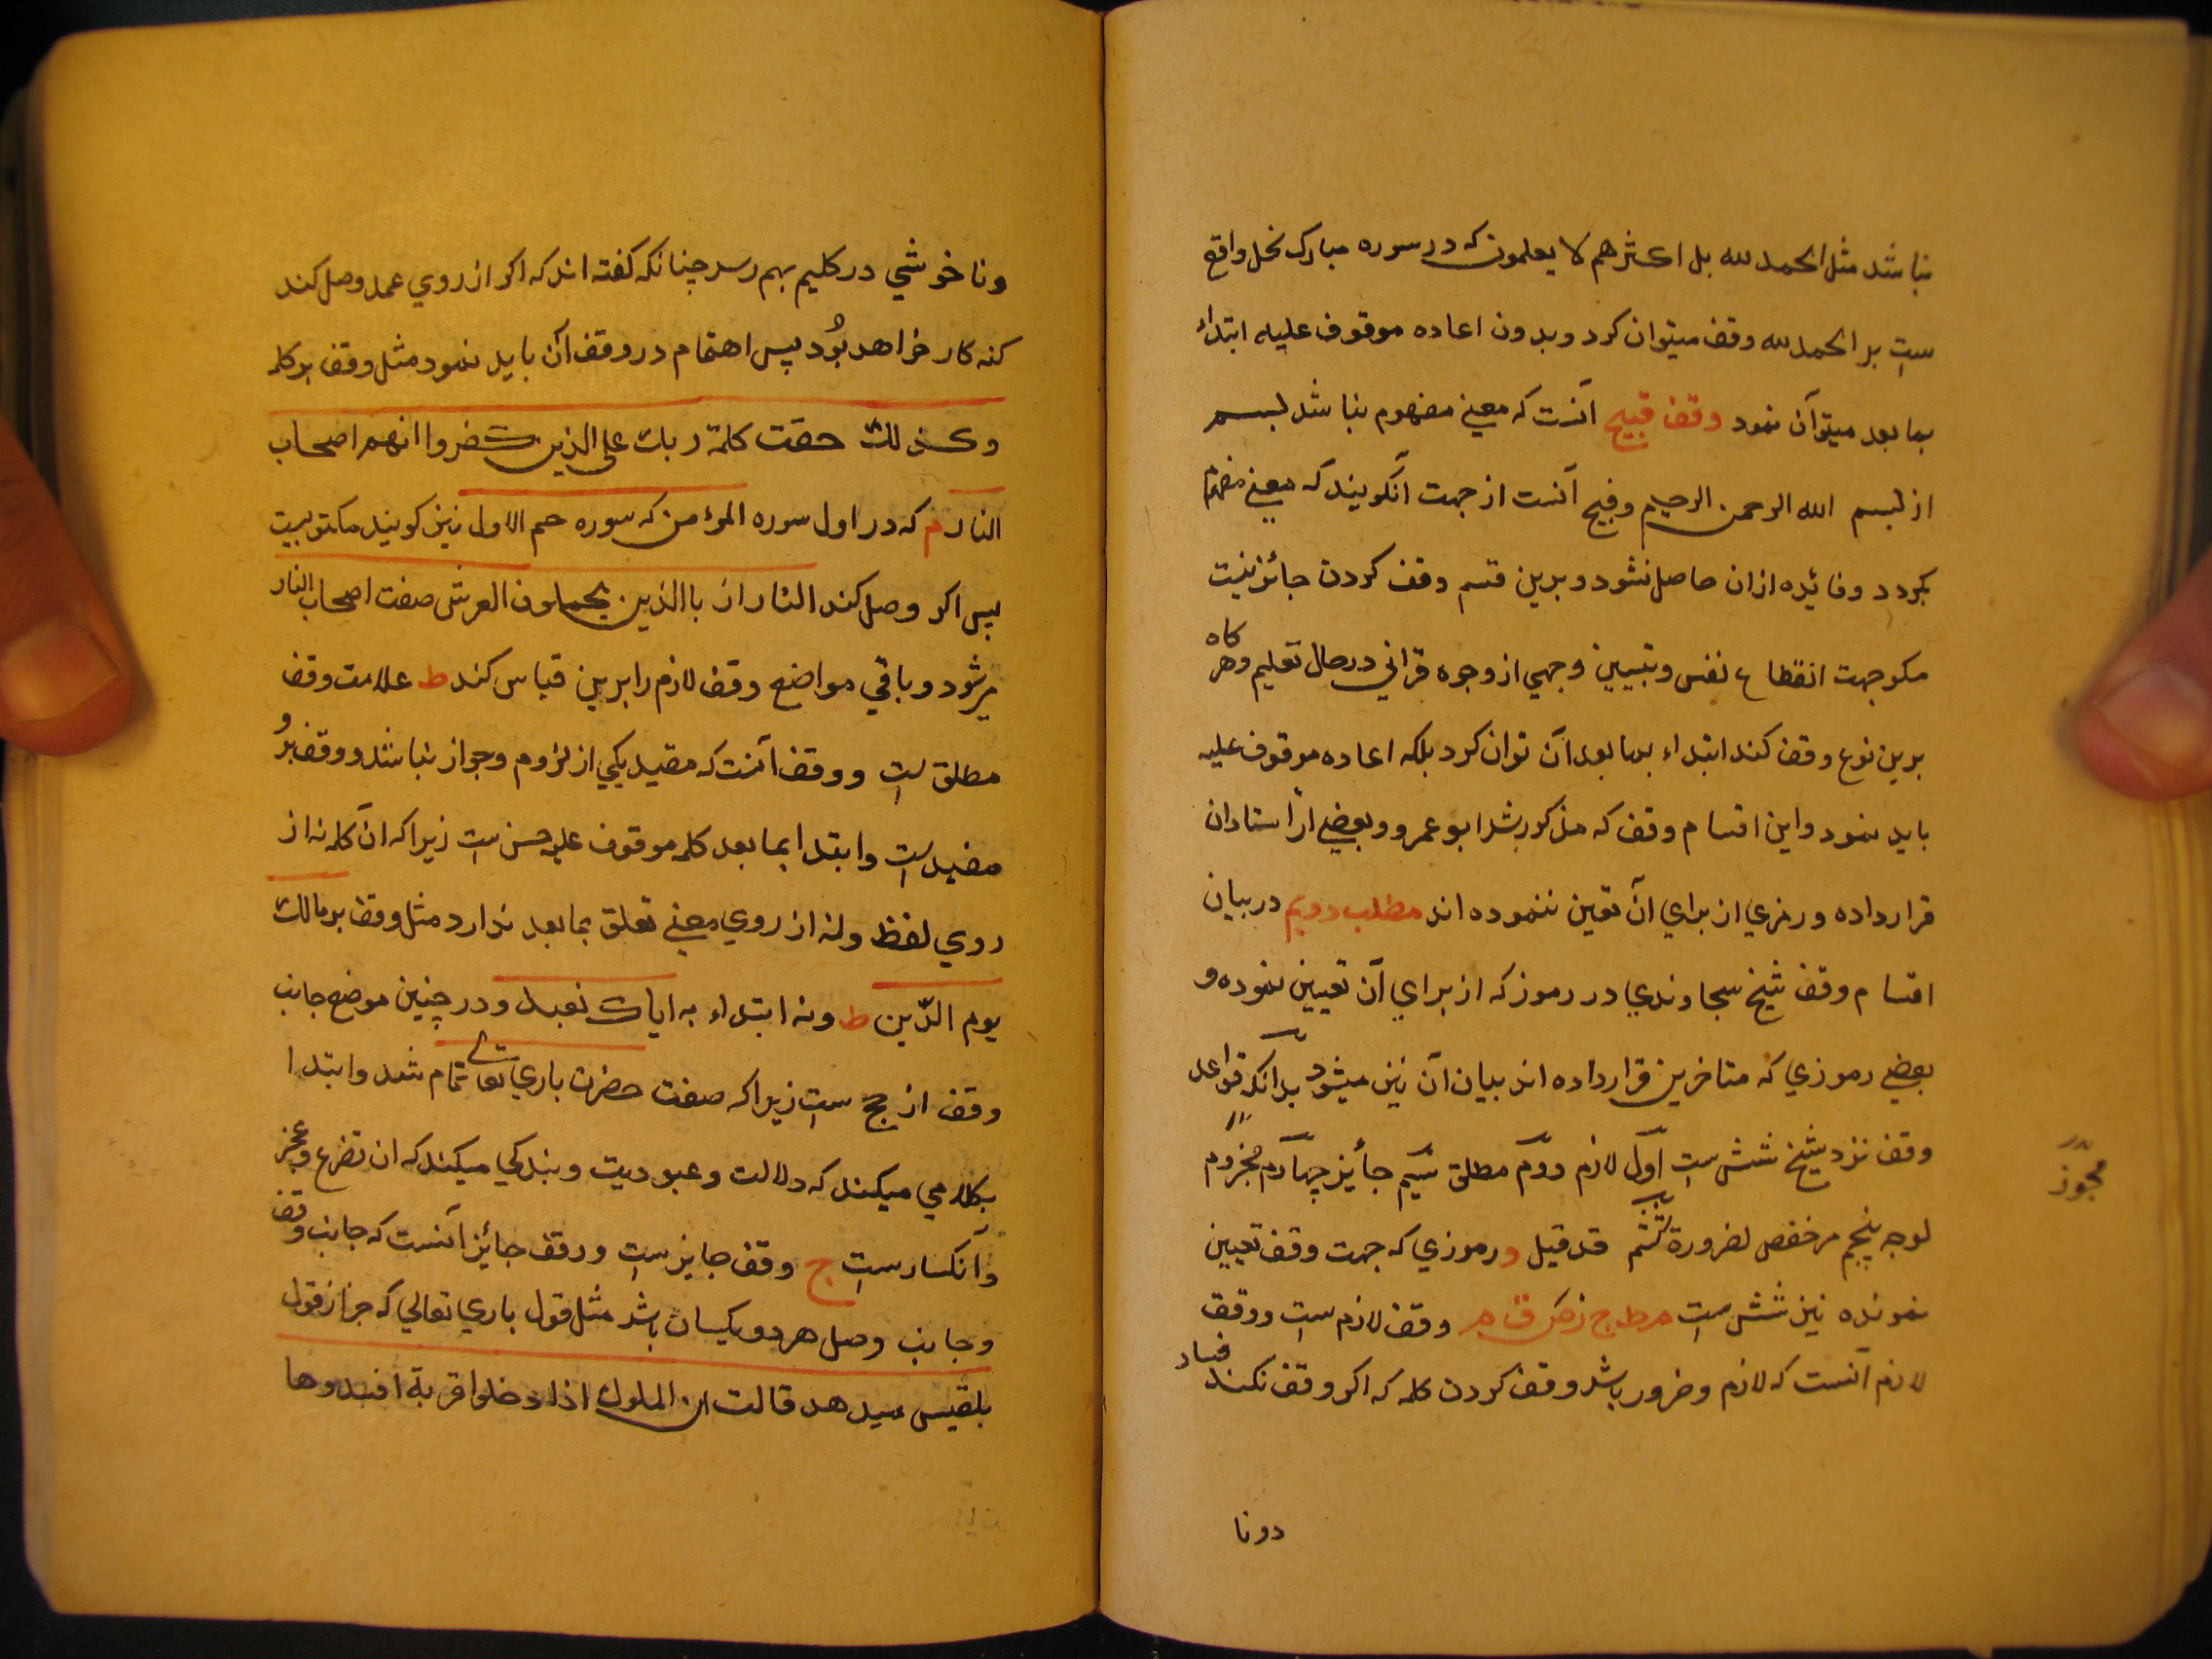 نباشد مثل الحمد لله بل اکثرهم لا یعلمون که در سوره مبارک نحل واقع
ست بر الحمد لله وقف میتوان کرد و بدون اعاده موقوف علیه ابتداء
بما بعد میتوآن نمود وقف قبیح آنست که معنی مفهوم نباشد لبسم
از لبسم الله الرحمن الرحیم و قبیح آنست از جهت آنکویند که معنی مفهوم
نکردد و فائیده ازان حاصل نشود و برین قسم وقف کردن جائز نیست
مکر جهت انقطاع نفس و تبیین وجهی از وجوه قرانی در حال تعلیم و هر کاه
برین نوع وقف کند ابتداء بما بعد آن توان کرد بلکه اعاده موقوف علیه
باید نمود و این اقسام وقف که مذکور شد ابو عمرو و بعضی از استادان
قرار داده و رمزی از برای آن تعین ننموده اند مطلب دویم در بیان
اقسام وقف شیخ سجاوندی در رموز که از برای آن تعیین نموده و
بعضی رموزی که متاخرین قرار داده اند بیان آن نیز میشود بدانکه قواعد
وقف نزد شیخ شش ست اول لازم دوم مطلق سیم جائیز چهارم مجزوم
مجوّز
لوجه پنجم مرخص لضرورة ششم قد قیل و رموزی که جهت وقف تعیین
نموده نیز شش ست م ط ج ز ص ق م وقف لازم ست و وقف
لازم آنست که لازم و ضرور باشد وقف کردن کلمه که اکر وقف نکند فساد
دونا
و ناخوشی در کلیم بهم رسد چنانکه کفته اند که اکر از روی عمد وصل کند
کنه کار خواهد بُود پس اهتمام در وقف آن باید نمود مثل وقف بر کلمه
وکذلک حقت کلمة ربک علی الذین کفروا انهم اصحاب
النار م که در اول سوره المؤمن که سوره حم الاول نیز کویند مکتوبیت
پس اکر وصل کند النار از با الذین یحملون العرش صفت اصحاب النار
میشود و باقی مواضع وقف لازم را برین قیاس کند ط علامت وقف
مطلق ست و وقف آنست که مقید بیکی از لزوم و جواز نباشد و وقف برو
مفید ست و ابتدا بما بعد کلمه موقوف علیه حسن ست زیرا که آن کلمه نه از
روی لفظ و نه از روی معنی تعلق بما بعد ندارد مثل وقف بر مالک
یوم الدّین ط و نه ابتداء به ایاک نعبد و در چنین موضع جانب
وقف ارجح ست زیرا که صفت حضرت باری تعالی تمام شد و ابتدا
بکلامی میکند که دلالت و عبودیت و بندکی میکند که ان تضرع و عجز
و آنکسار ست ج وقف جایز ست و وقف جائیز آنست که جانب وقف
و جانب وصل هر دو یکسان باشد مثل قول باری تعالی که خبر از قول
بلقیس میدهد قالت ان الملوک اذا دخلوا قریة افسدوها